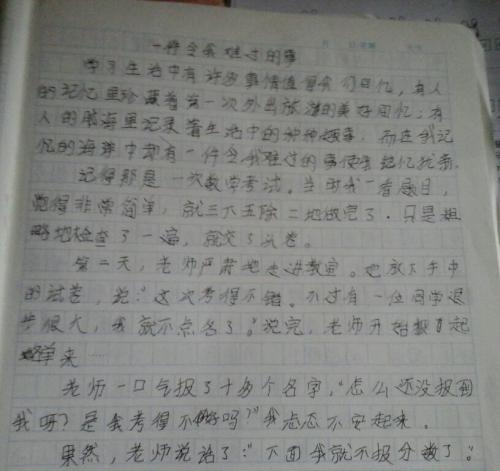 一件令我难过的事
学习生活中有许多事情值得我们回忆，有人
的记忆里珍藏着有一次外出旅游的美好回忆；有
人的脑海里记录着生活中的种种趣事，而在我记
忆的海洋中却有一件令我难过的事使我记忆犹新。
记得那是一次数学考试。当时我一看题目，
觉得非常简单，就三下五除二地做完了。只是粗
略地检查了一遍，就交了试卷。
第二天，老师严肃地走进教室。他放下手中
的试卷，说："这次考得不错。不过有一位同学退
步很大，我就不点名了。"说完，老师开始报
起
单来……
老师一口气报了十多个名字，"怎么还没报到
我呀？是我考得不好吗？"我忐忑不安起来。
果然，老师说话了："下面我就不报分数了。"